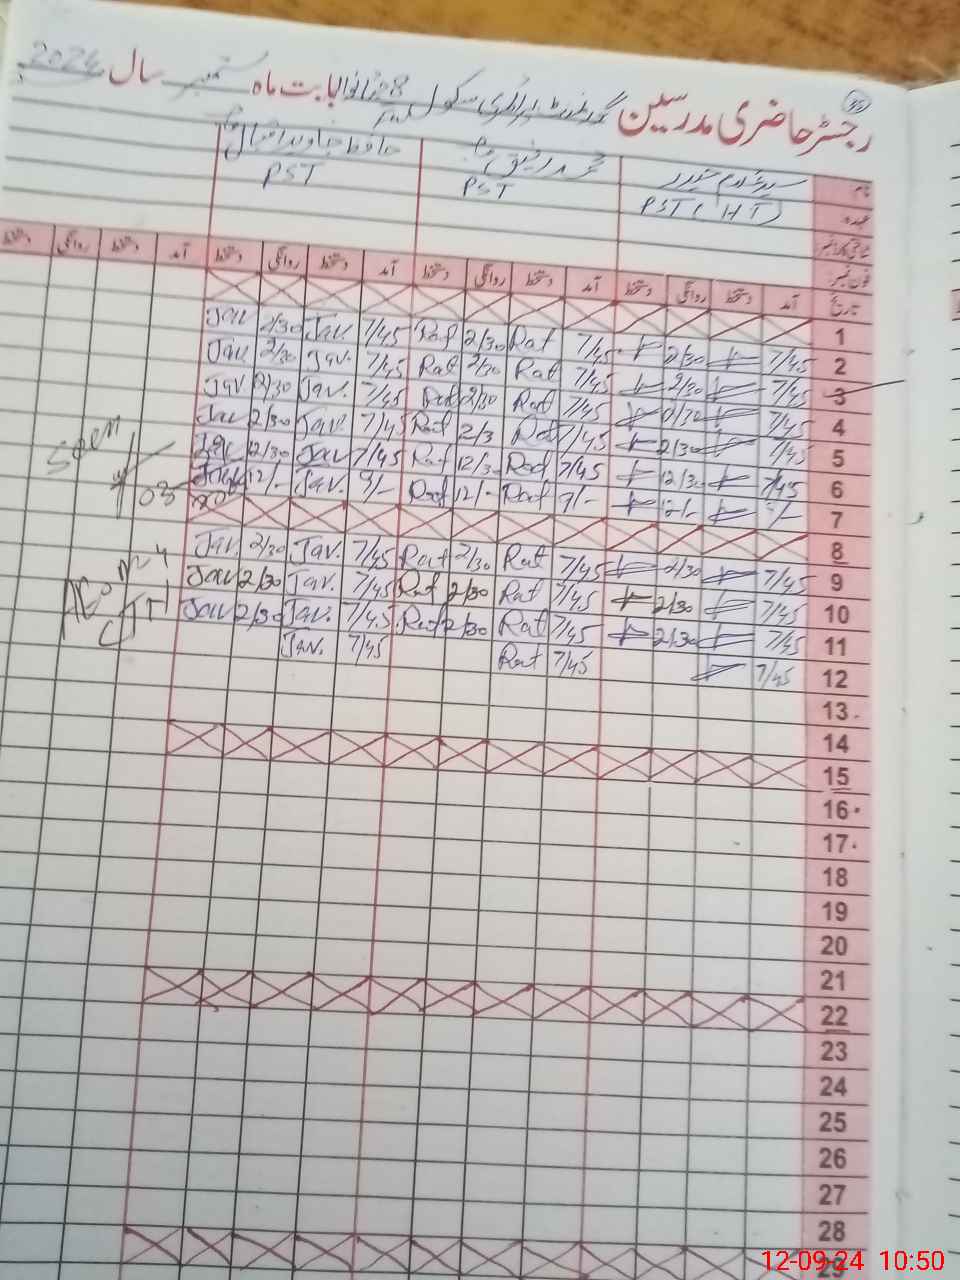 35
رجسٹر حاضری مدرسین گورنمنٹ پرائمری سکول بابت ماہ ستمبر سال 2024
نام محمد رفیق حافظ جاوید اقبال
عہدہ PST (HT) PST PST
شناختی کارڈ نمبر
فون نمبر
تاریخ آمد دستخط روانگی دستخط آمد دستخط روانگی دستخط آمد دستخط روانگی دستخط آمد دستخط روانگی دستخط
1
2 7/45 2/30 7/45 Rat 2/30 Raf 7/45 Jav. 2/30 Jav
3 7/45 2/30 7/45 Rat 2/30 Rat 7/45 Jav. 2/30 Jav
4 7/45 7/45 Rat 2/30 Raf 7/45 Jav. 2/30 Jav
5 7/45 2/30 7/45 Rat 2/3 Raf 7/45 Jav. 2/30 Jav
6 7/45 12/30 7/45 Raf 12/30 Raf 7/45 Jav 12/30 Jav
7 9/- 12/- 9/- Raf 12/- Raf 9/- Jav. 12/-
8
9 7/45 2/30 7/45 Rat 2/30 Rat 7/45 Jav. 2/30 Jav.
10 7/45 2/30 7/45 Rat 2/30 Rat 7/45 Jav. 2/30 Jav
11 7/45 2/30 7/45 Rat 2/30 Raf 7/45 Jav. 2/30 Jav
12 7/45 7/45 Rat 7/45 Jav.
13
14
15
16
17
18
19
20
21
22
23
24
25
26
27
28
29
12-09-24 10:50